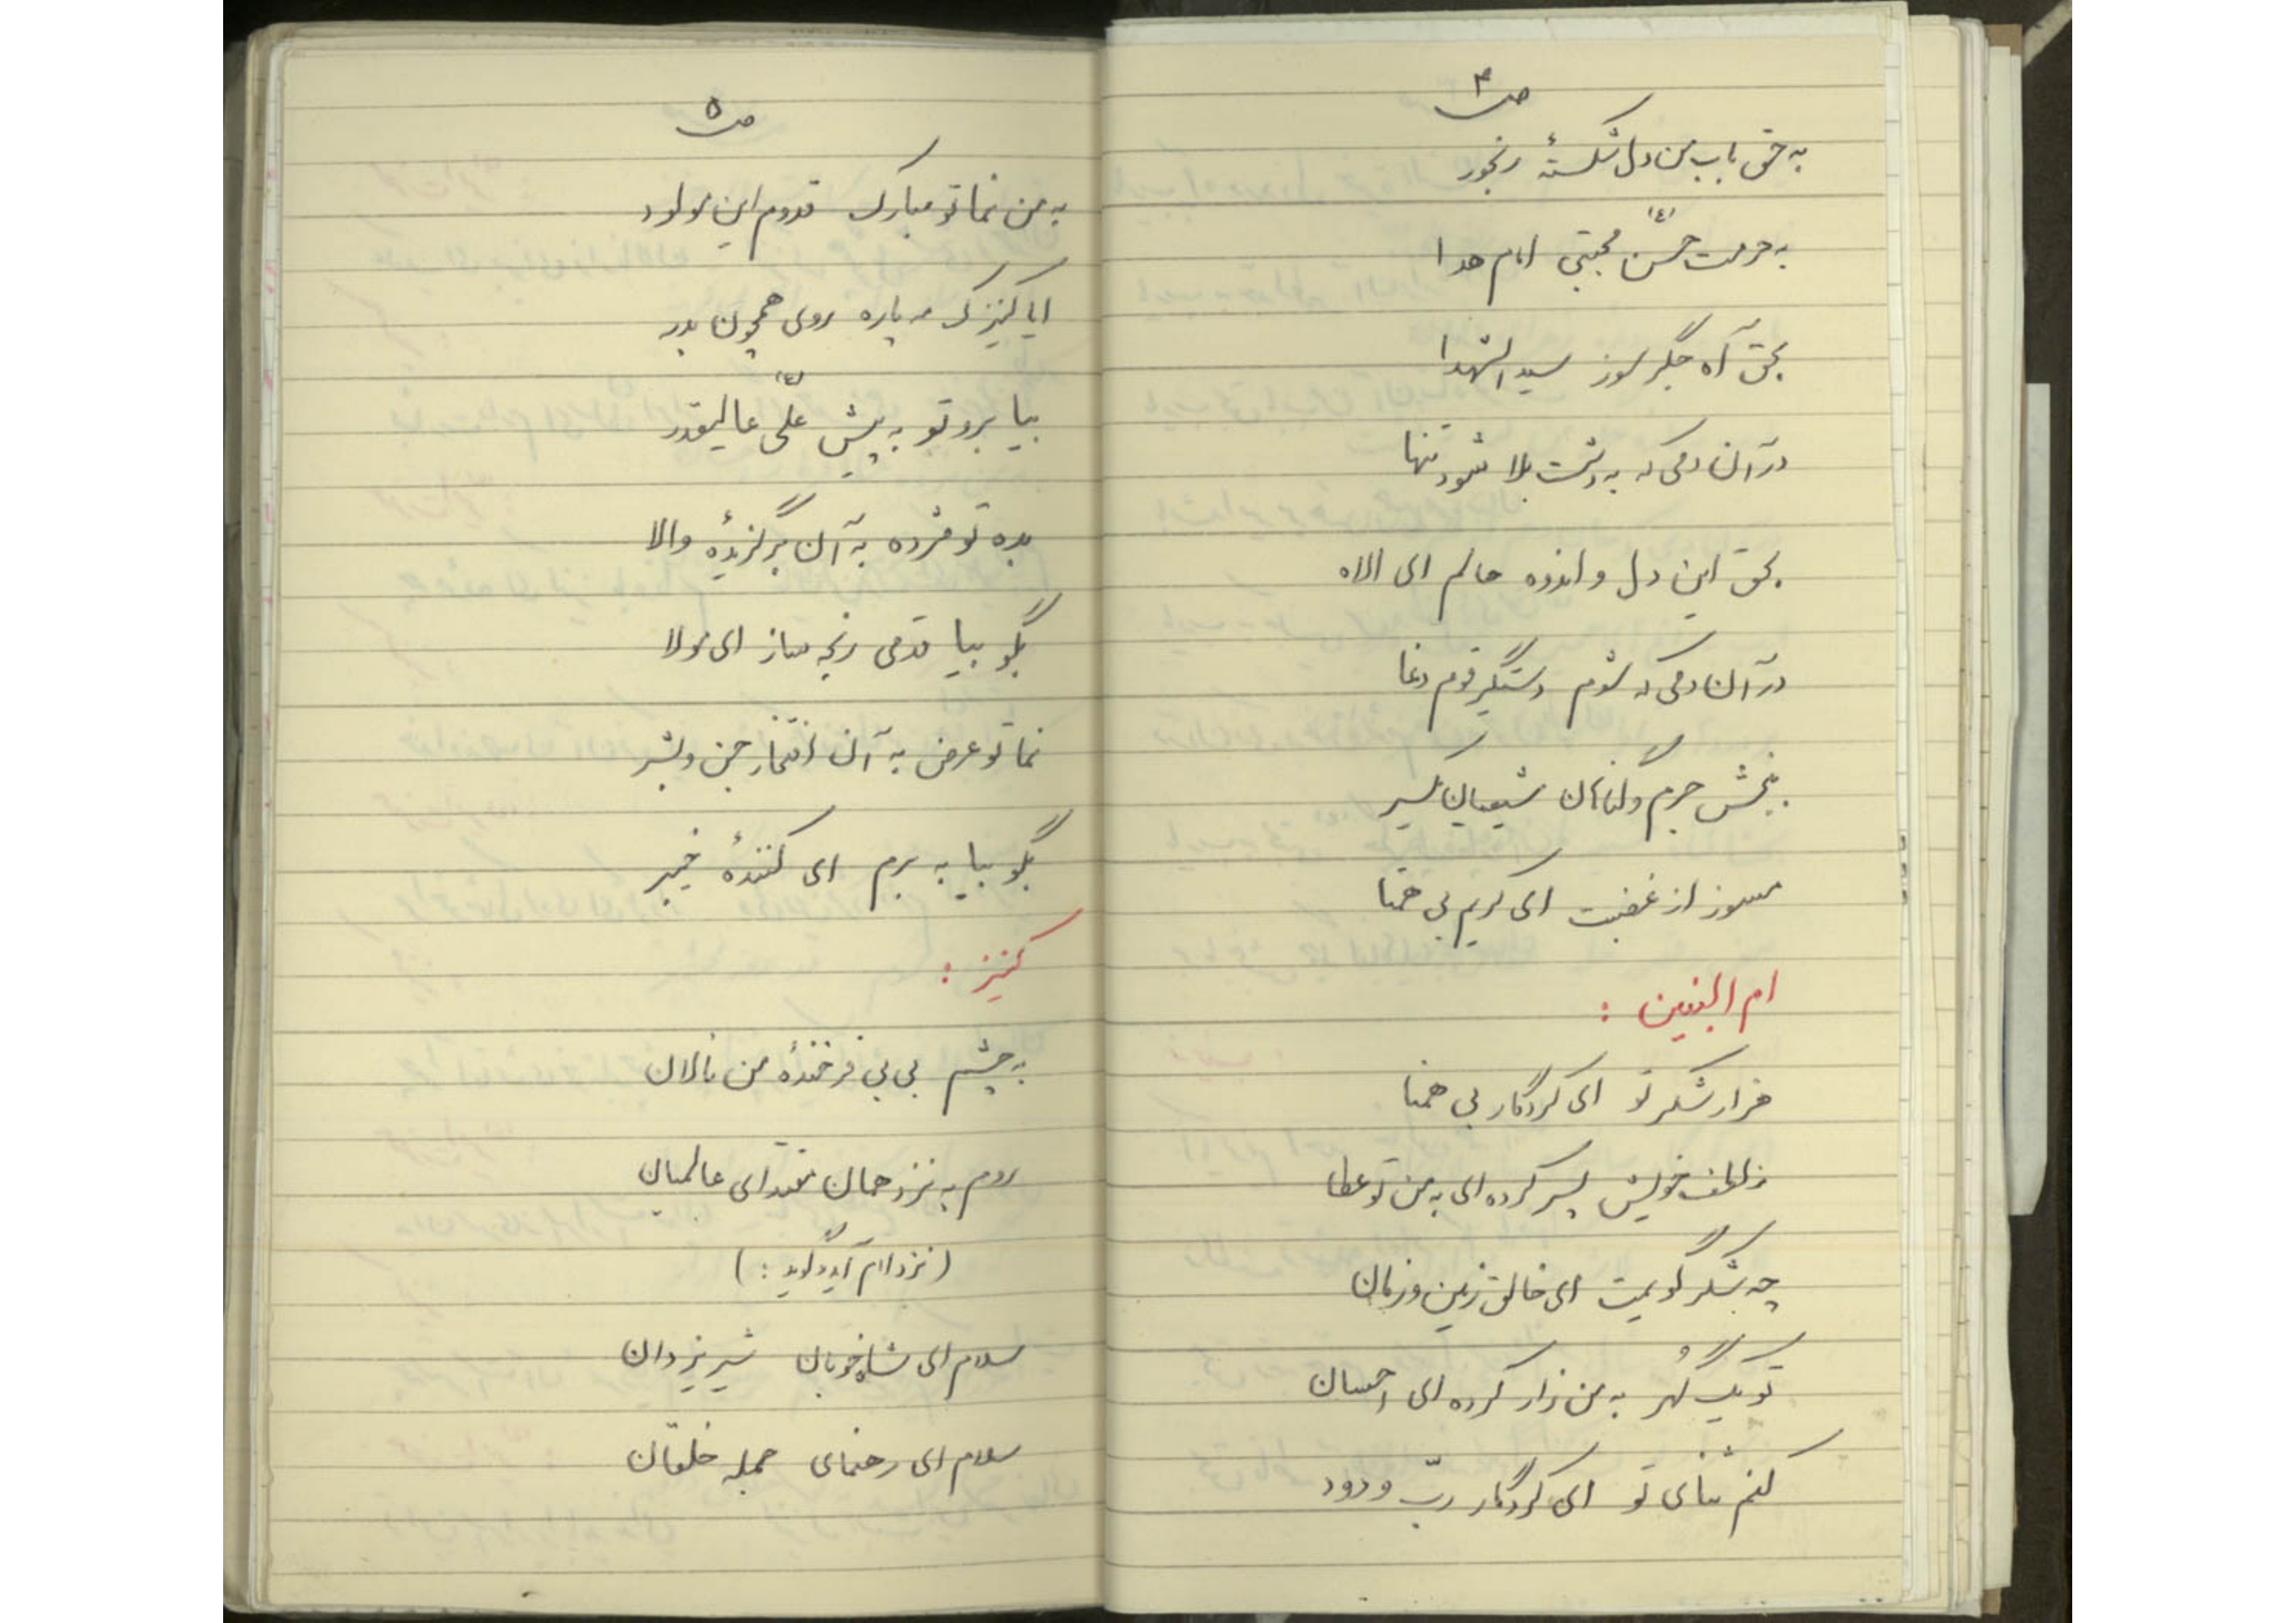 ص۴
به حق باب من دل شکستهٔ رنجور
به حرمت حسن (ع) مجتبی امام هدا
بحق آه جگر سوز سیدالشهدا
در آن دمی که به دشت بلا شود تنها
بحق این دل و اندوه حالم ای الاه
در آن دمی که شوم دستگیر قوم دغا
ببخش جرم و گناهان شیعیان یکسر
مسوز از غضبت ای کریم بی همتا
ام البنین :
هزار شکر تو ای کردگار بی همتا
ز لطف خویش پسر کرده ای به من تو عطا
چه شکر گویمت ای خالق زمین و زمان
تو یک گُهر به من زار کرده ای احسان
کنم ثنای تو ای کردگار ربّ ودود
ص۵
به من نما تو مبارک قدوم این مولود
ایا کنیزک مه پاره روی همچون بدر
بیا برو تو به پیش علّی (ع) عالیقدر
بده تو مژده به آن برگزیدهٔ والا
بگو بیا قدمی رنجه ساز ای مولا
نما تو عرض به آن افتخار جن و بشر
بگو بیا به برم ای کنندهٔ خیبر
کنیز :
به چشم بی بی فرخندهٔ من نالان
روم به نزد همان مقتدای عالمیان
(نزد امام آید و گوید :)
سلام ای شاه خوبان شیر یزدان
سلام ای رهنمای جمله خلقان